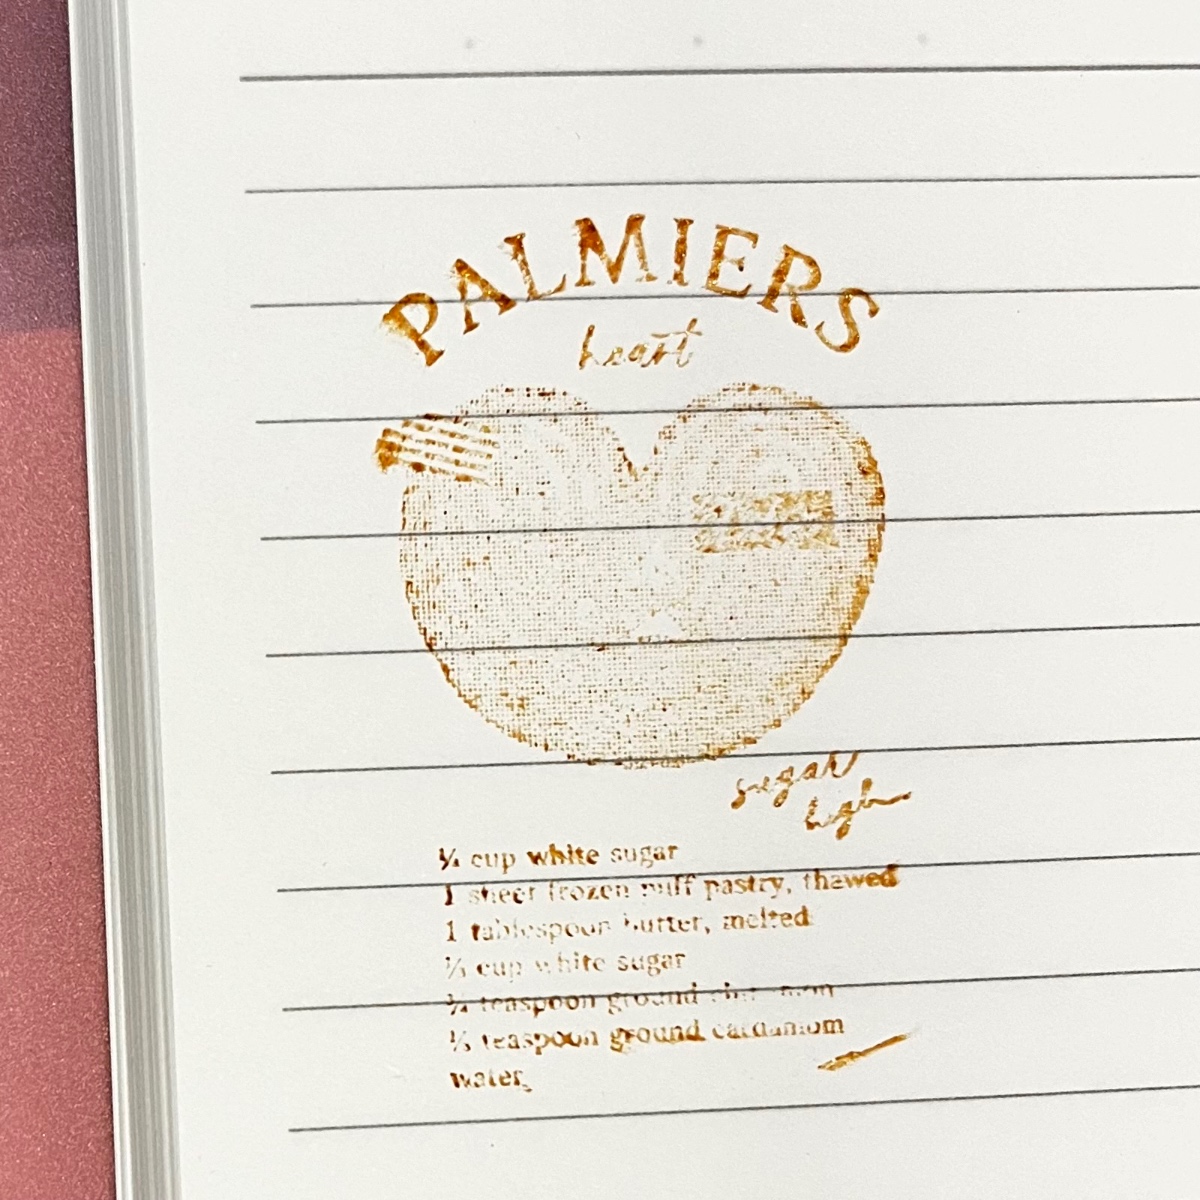 PALMIERS
heart
sugar
high
¼ cup white sugar
1 sheet frozen puff pastry, thawed
1 tablespoon butter, melted
⅓ cup white sugar
teaspoon ground cinnamon
teaspoon ground cardamom
water